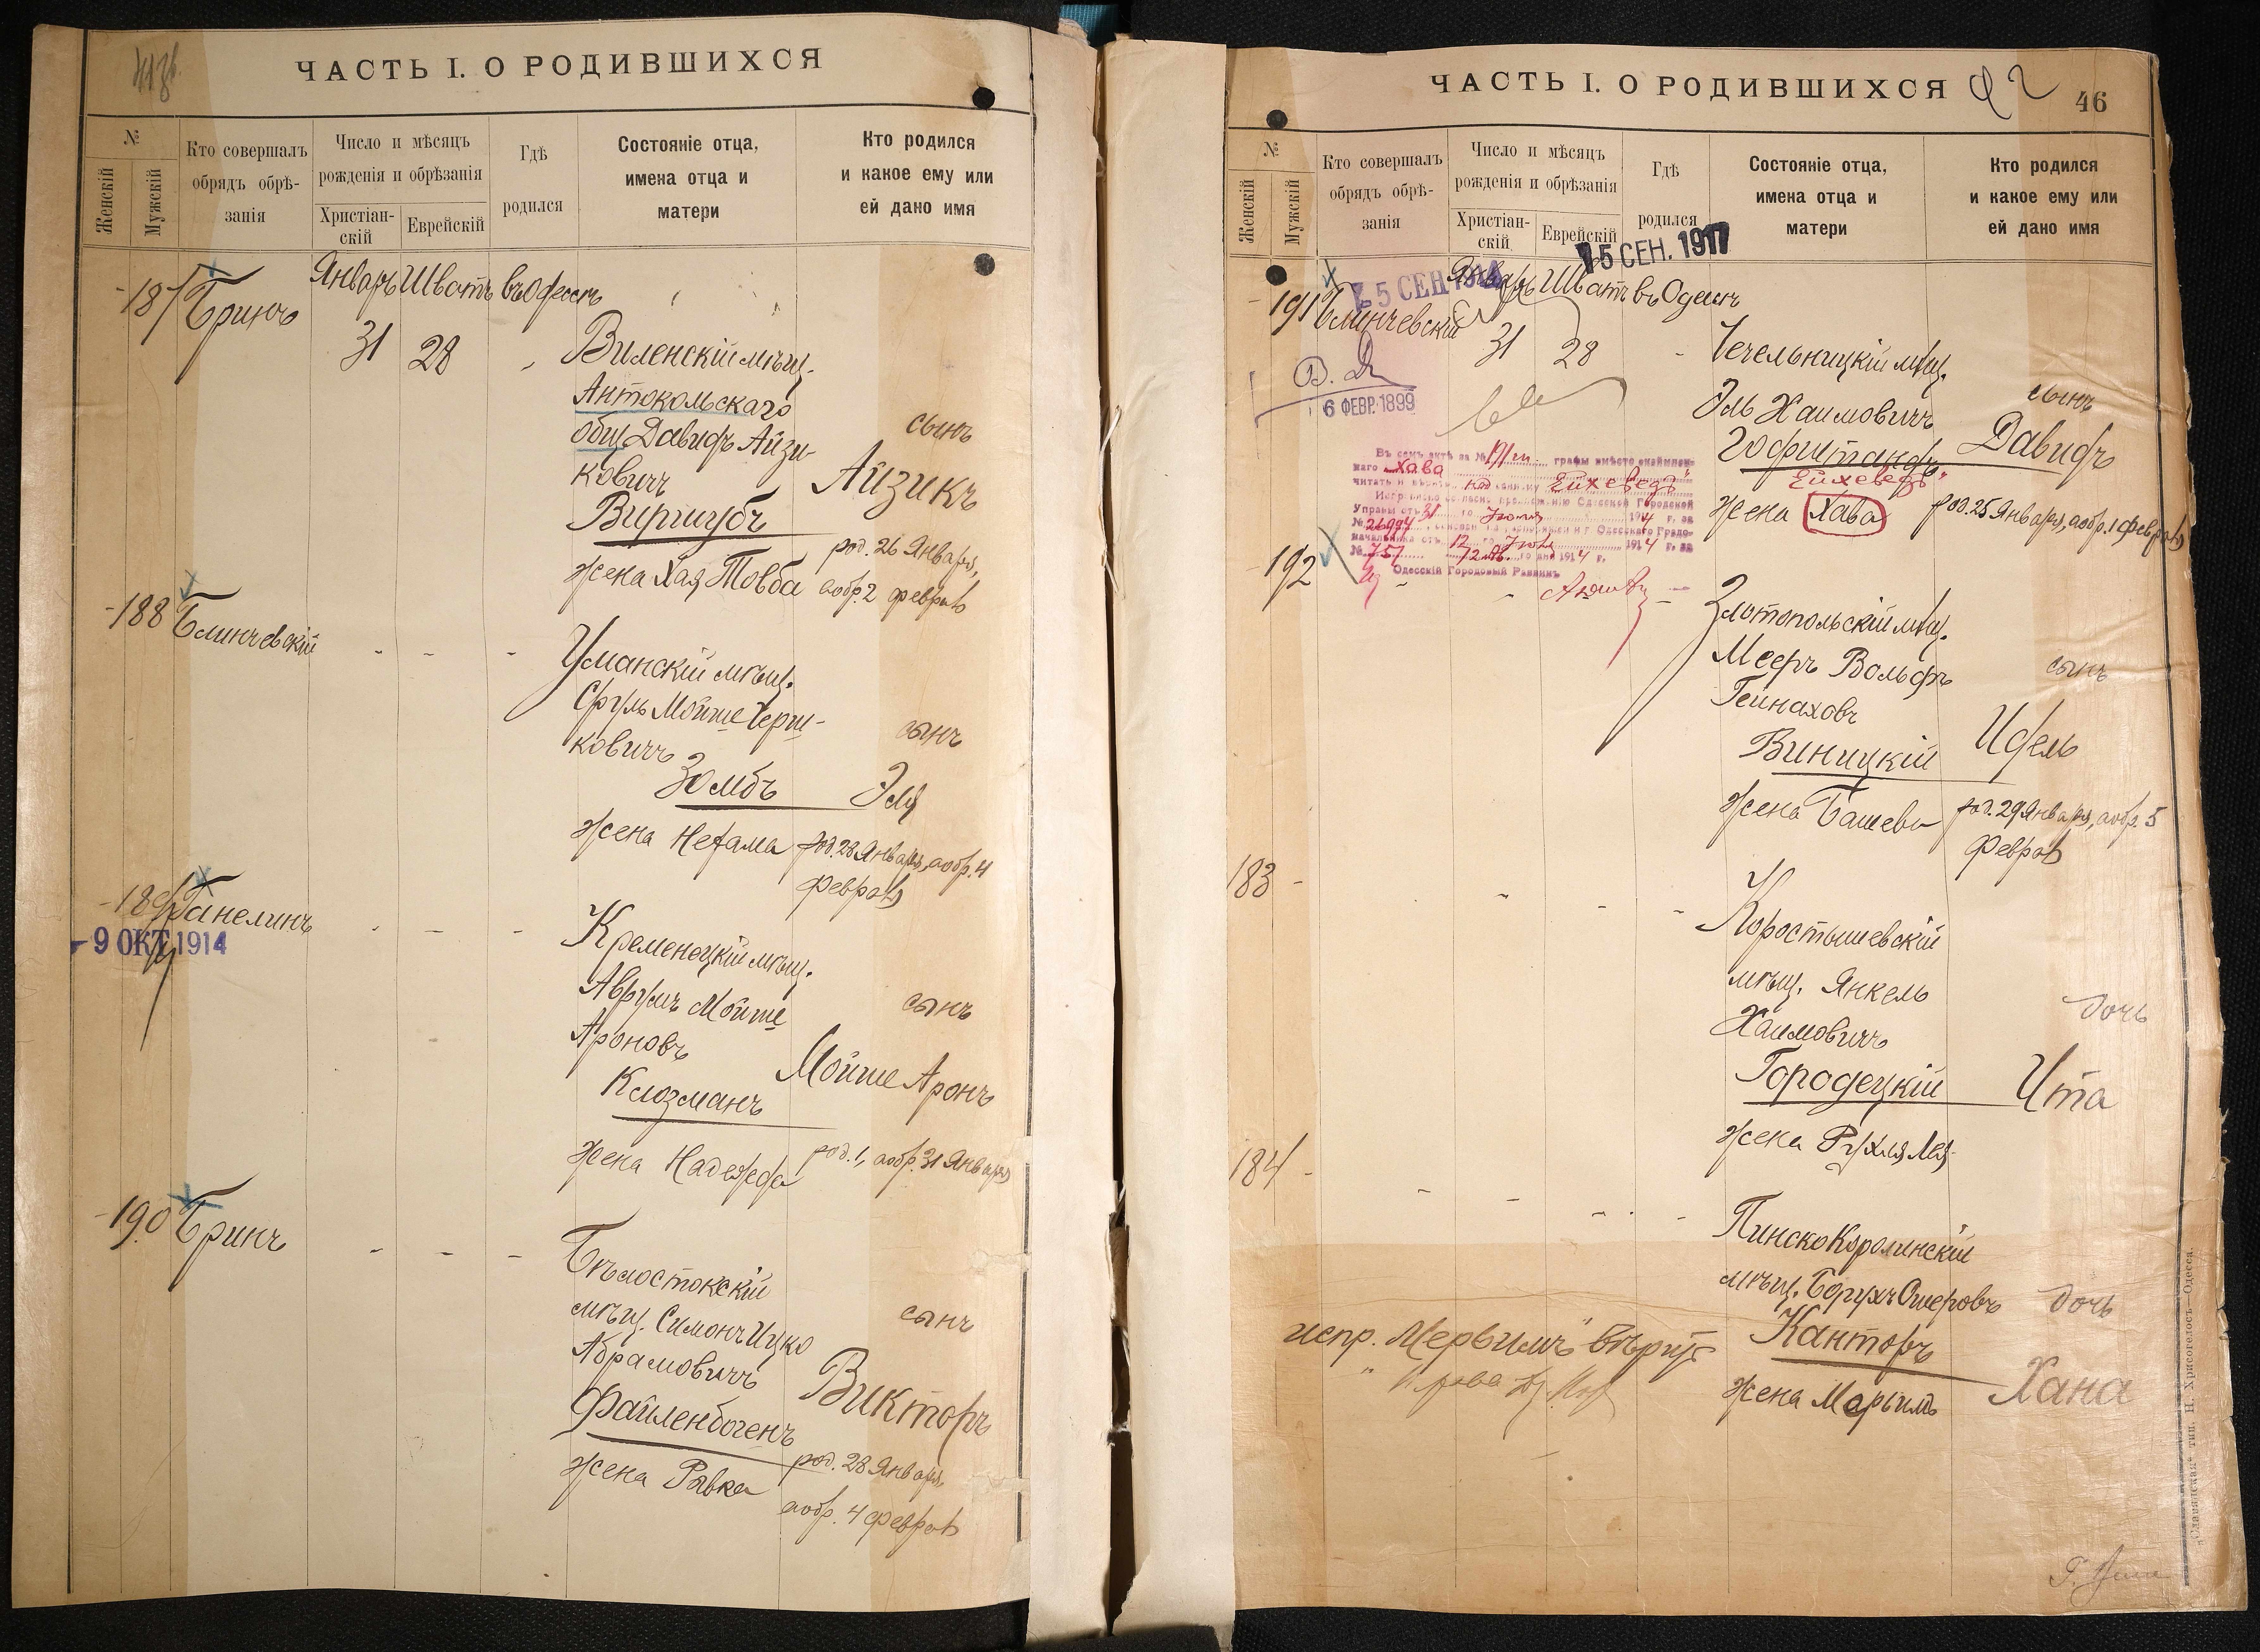 ЧАСТЬ I. О РОДИВШИХСЯ
№
Женскій
Мужскій
Кто совершалъ
обрядъ обрѣ-
занія
Число и мѣсяцъ
рожденія и обрѣзанія
Христіан-
скій
Еврейскій
Гдѣ
родился
Состояніе отца,
имена отца и
матери
Кто родился
и какое ему или
ей дано имя
187 Бринъ
Январь Шватъ въ Одессѣ
31 28
Виленскій мѣщ.
Антокольскаго
общ Давидъ Айзи-
ковичъ
Виршубъ
жена Хая Товба
сынъ
Айзикъ
род. 26 Января,
а обр. 2 февраля
188 Блинчевскій
Уманскій мѣщ.
Сруль Мойше Герш-
ковичъ
Зомбъ
жена Нехама
сынъ
Эля
род. 28 Января, а обр. 4
февраля
189 Ганелинъ
9 ОКТ 1914
Кременецкій мѣщ.
Аврумъ Мойше
Ароновъ
Клозманъ
жена Надежда
сынъ
Мойше Аронъ
род. 1, а обр. 31 Января
190 Бринъ
Бѣлостокскій
мѣщ. Симонъ Ицко
Абрамовичъ
Файленбогенъ
жена Рывка
сынъ
Викторъ
род. 28 Января,
а обр. 4 февраля
ЧАСТЬ I. О РОДИВШИХСЯ
46
№
Женскій
Мужскій
Кто совершалъ
обрядъ обрѣ-
занія
Число и мѣсяцъ
рожденія и обрѣзанія
Христіан-
скій
Еврейскій
Гдѣ
родился
Состояніе отца,
имена отца и
матери
Кто родился
и какое ему или
ей дано имя
15 СЕН. 1917
191 Блинчевскій
Январь Шватъ въ Одессѣ
31 28
6 ФЕВР. 1899
Чечельницкій мѣщ.
Эль Хаимовичъ
Гофштандъ
Ейхеведъ
жена Хава
сынъ
Давидъ
род. 25 Января, а обр. 1 февраля
Въ семъ актѣ за № 191 м. графы вмѣсто
Хава
читать и Ейхеведъ
Управы отъ 31 го 1914 г. за
№ 26994
начальника отъ 12 го 1914 г. за
№ 751 1914 г.
Одесскій Городовый Раввинъ
192
Златопольскій мѣщ.
Мееръ Вольфъ
Гейнаховъ
Виницкій
жена Башева
сынъ
Идель
род. 29 Января, а обр. 5
февраля
183
Коростышевскій
мѣщ. Янкель
Хаимовичъ
Городецкій
жена Рухля Лея
дочь
Ита
184
Пинско Каролинскій
мѣщ. Борухъ Ошеровъ
Канторъ
жена Марьимъ
дочь
Хана
испр. „Мерьимъ“ вѣрить
„Славянская“ тип. Н. Хрисогелосъ—Одесса.